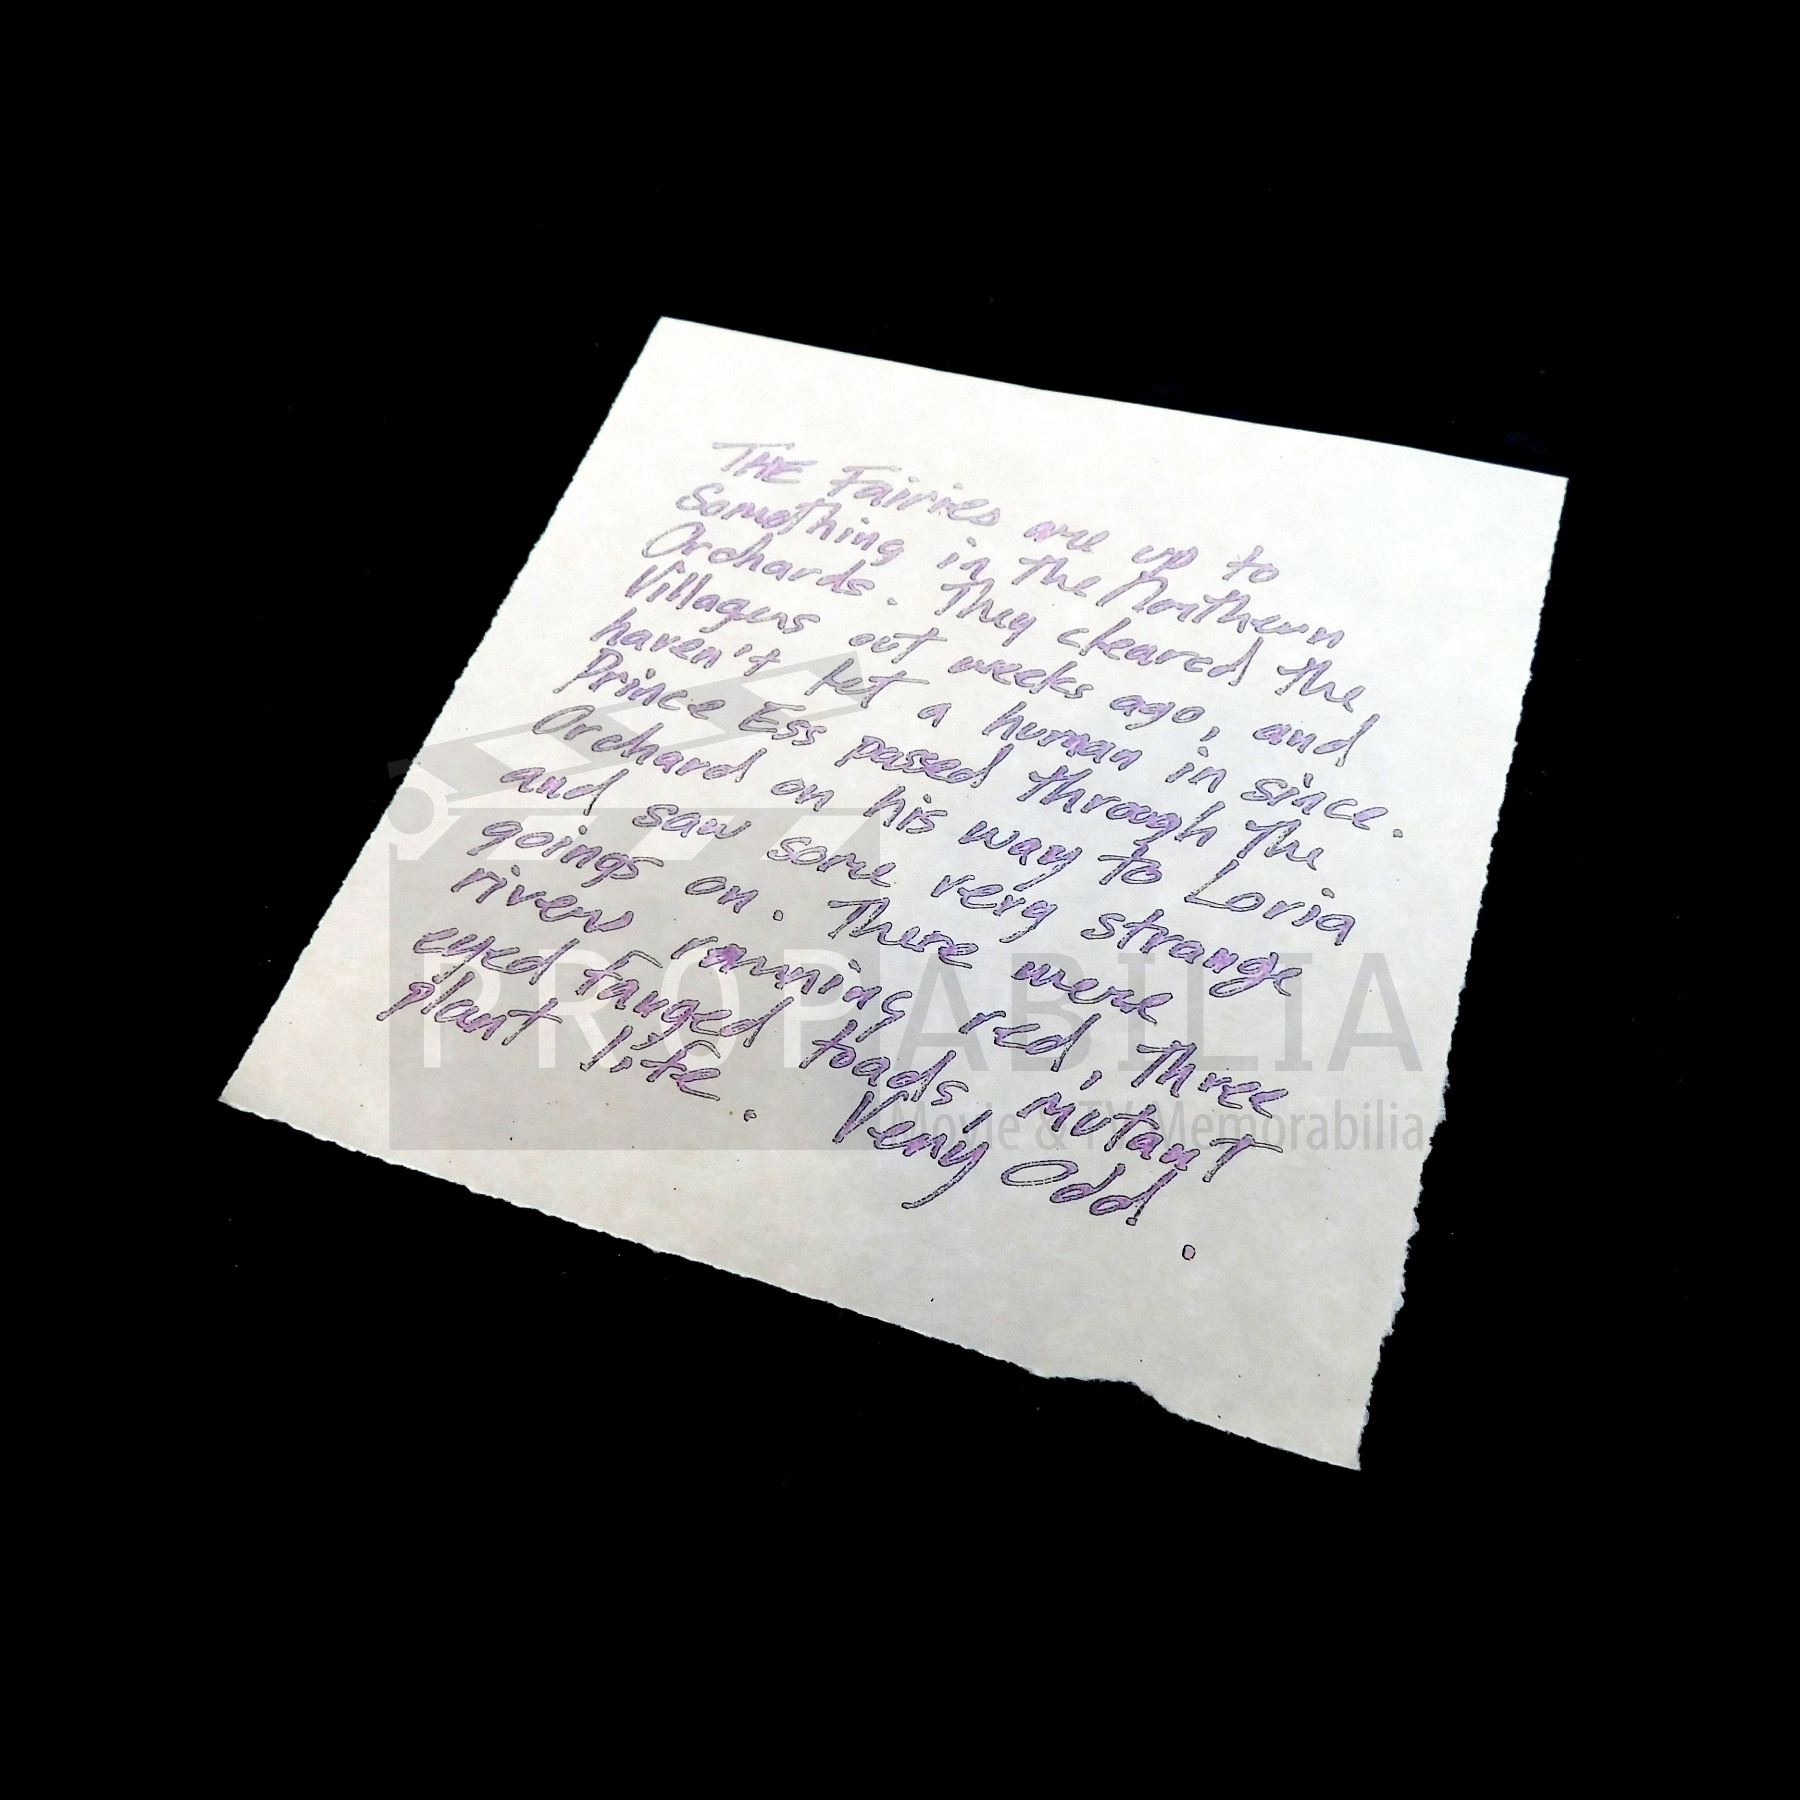 THE Fairies are up to
Something in the Northern
Orchards. They cleared the
Villagers out weeks ago, and
haven't let a human in since.
Prince Ess passed through the
Orchard on his way to Loria
and saw some very strange
goings on. There were
rivers running red, three
eyed fanged toads, mutant
plant life. Very Odd.
PROPABILIA
Movie & TV Memorabilia